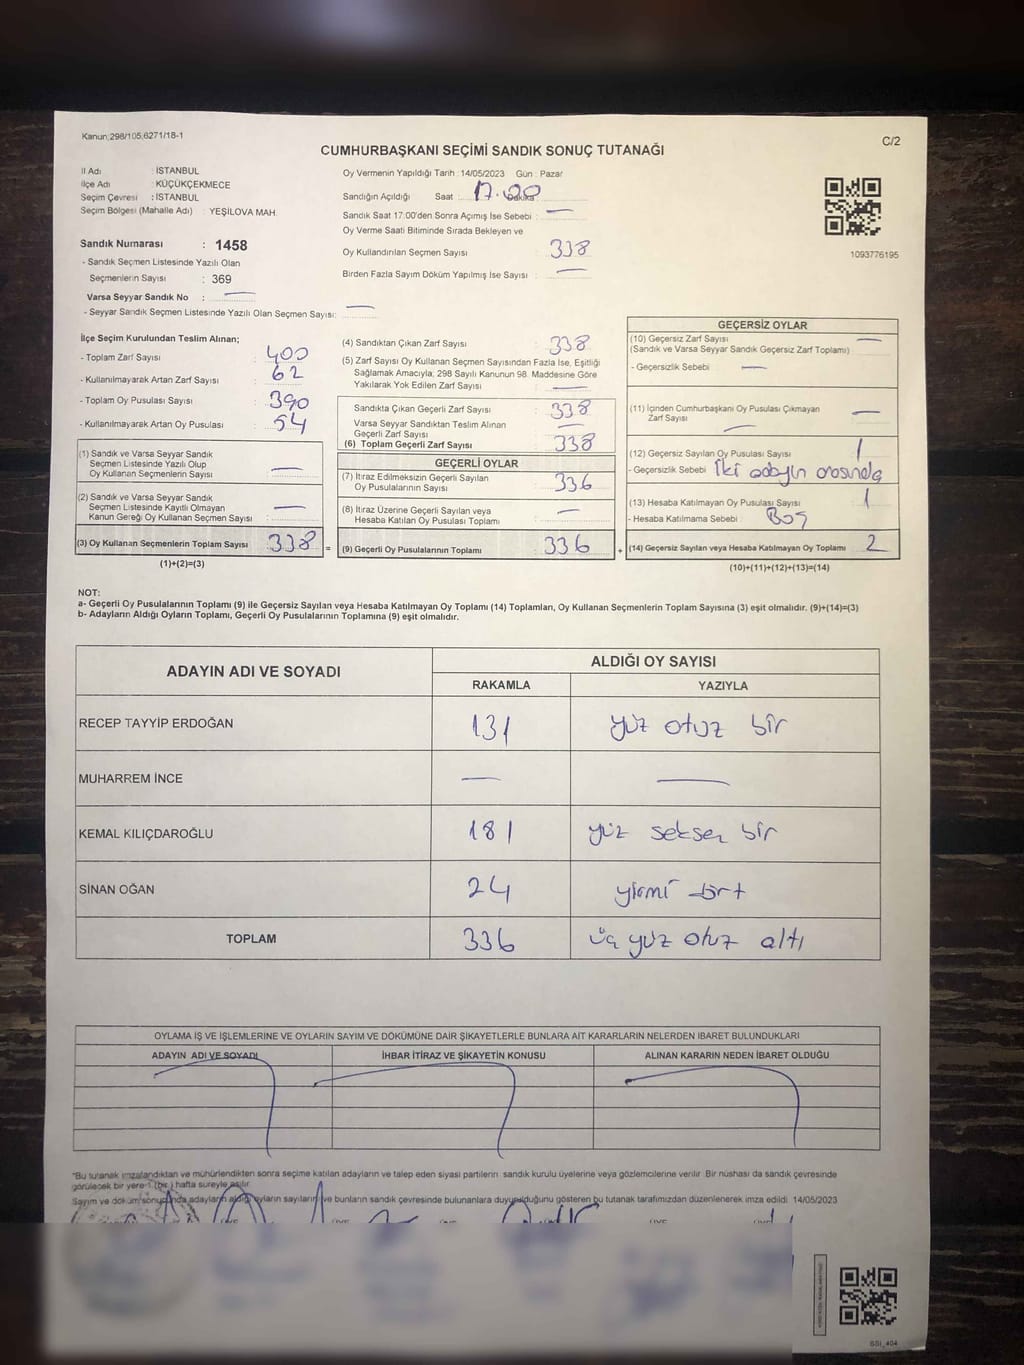 Kanun;298/105;6271/18-1
C/2
CUMHURBAŞKANI SEÇİMİ SANDIK SONUÇ TUTANAĞI
İl Adı : İSTANBUL
İlçe Adı : KÜÇÜKÇEKMECE
Seçim Çevresi : İSTANBUL
Seçim Bölgesi (Mahalle Adı) : YEŞİLOVA MAH.
Sandık Numarası : 1458
- Sandık Seçmen Listesinde Yazılı Olan
Seçmenlerin Sayısı : 369
Varsa Seyyar Sandık No : —
- Seyyar Sandık Seçmen Listesinde Yazılı Olan Seçmen Sayısı: —
Oy Vermenin Yapıldığı Tarih : 14/05/2023 Gün : Pazar
Sandığın Açıldığı Saat : 17.00 Dakika :
Sandık Saat 17:00'den Sonra Açımış İse Sebebi : —
Oy Verme Saati Bitiminde Sırada Bekleyen ve
Oy Kullandırılan Seçmen Sayısı : 338
Birden Fazla Sayım Döküm Yapılmış İse Sayısı : —
1093776195
İlçe Seçim Kurulundan Teslim Alınan;
- Toplam Zarf Sayısı : 400
- Kullanılmayarak Artan Zarf Sayısı : 62
- Toplam Oy Pusulası Sayısı : 390
- Kullanılmayarak Artan Oy Pusulası : 54
(1) Sandık ve Varsa Seyyar Sandık
Seçmen Listesinde Yazılı Olup
Oy Kullanan Seçmenlerin Sayısı : —
(2) Sandık ve Varsa Seyyar Sandık
Seçmen Listesinde Kayıtlı Olmayan
Kanun Gereği Oy Kullanan Seçmen Sayısı : —
(3) Oy Kullanan Seçmenlerin Toplam Sayısı 338 =
(1)+(2)=(3)
(4) Sandıktan Çıkan Zarf Sayısı : 338
(5) Zarf Sayısı Oy Kullanan Seçmen Sayısından Fazla İse, Eşitliği
Sağlamak Amacıyla, 298 Sayılı Kanunun 98. Maddesine Göre
Yakılarak Yok Edilen Zarf Sayısı : —
Sandıkta Çıkan Geçerli Zarf Sayısı : 338
Varsa Seyyar Sandıktan Teslim Alınan
Geçerli Zarf Sayısı : —
(6) Toplam Geçerli Zarf Sayısı : 338
GEÇERLİ OYLAR
(7) İtiraz Edilmeksizin Geçerli Sayılan
Oy Pusulalarının Sayısı : 336
(8) İtiraz Üzerine Geçerli Sayılan veya
Hesaba Katılan Oy Pusulası Toplamı : —
(9) Geçerli Oy Pusulalarının Toplamı : 336 +
GEÇERSİZ OYLAR
(10) Geçersiz Zarf Sayısı : —
(Sandık ve Varsa Seyyar Sandık Geçersiz Zarf Toplamı)
- Geçersizlik Sebebi : —
(11) İçinden Cumhurbaşkanı Oy Pusulası Çıkmayan
Zarf Sayısı : —
(12) Geçersiz Sayılan Oy Pusulası Sayısı : 1
- Geçersizlik Sebebi : İki adayın arasında
(13) Hesaba Katılmayan Oy Pusulası Sayısı : 1
- Hesaba Katılmama Sebebi : Boş
(14) Geçersiz Sayılan veya Hesaba Katılmayan Oy Toplamı : 2
(10)+(11)+(12)+(13)=(14)
NOT:
a- Geçerli Oy Pusulalarının Toplamı (9) ile Geçersiz Sayılan veya Hesaba Katılmayan Oy Toplamı (14) Toplamları, Oy Kullanan Seçmenlerin Toplam Sayısına (3) eşit olmalıdır. (9)+(14)=(3)
b- Adayların Aldığı Oyların Toplamı, Geçerli Oy Pusulalarının Toplamına (9) eşit olmalıdır.
ADAYIN ADI VE SOYADI
ALDIĞI OY SAYISI
RAKAMLA YAZIYLA
RECEP TAYYİP ERDOĞAN 131 yüz otuz bir
MUHARREM İNCE — —
KEMAL KILIÇDAROĞLU 181 yüz seksen bir
SİNAN OĞAN 24 yirmi dört
TOPLAM 336 üç yüz otuz altı
OYLAMA İŞ VE İŞLEMLERİNE VE OYLARIN SAYIM VE DÖKÜMÜNE DAİR ŞİKAYETLERLE BUNLARA AİT KARARLARIN NELERDEN İBARET BULUNDUKLARI
ADAYIN ADI VE SOYADI İHBAR İTİRAZ VE ŞİKAYETİN KONUSU ALINAN KARARIN NEDEN İBARET OLDUĞU
*Bu tutanak imzalandıktan ve mühürlendikten sonra seçime katılan adayların ve talep eden siyasi partilerin sandık kurulu üyelerine veya gözlemcilerine verilir. Bir nüshası da sandık çevresinde
görülecek bir yere 1 (bir) hafta süreyle asılır.
Sayım ve döküm sonucunda adayların aldığı oyların sayıları ve bunların sandık çevresinde bulunanlara duyurulduğunu gösteren bu tutanak tarafımızdan düzenlenerek imza edildi. 14/05/2023
SSI_404